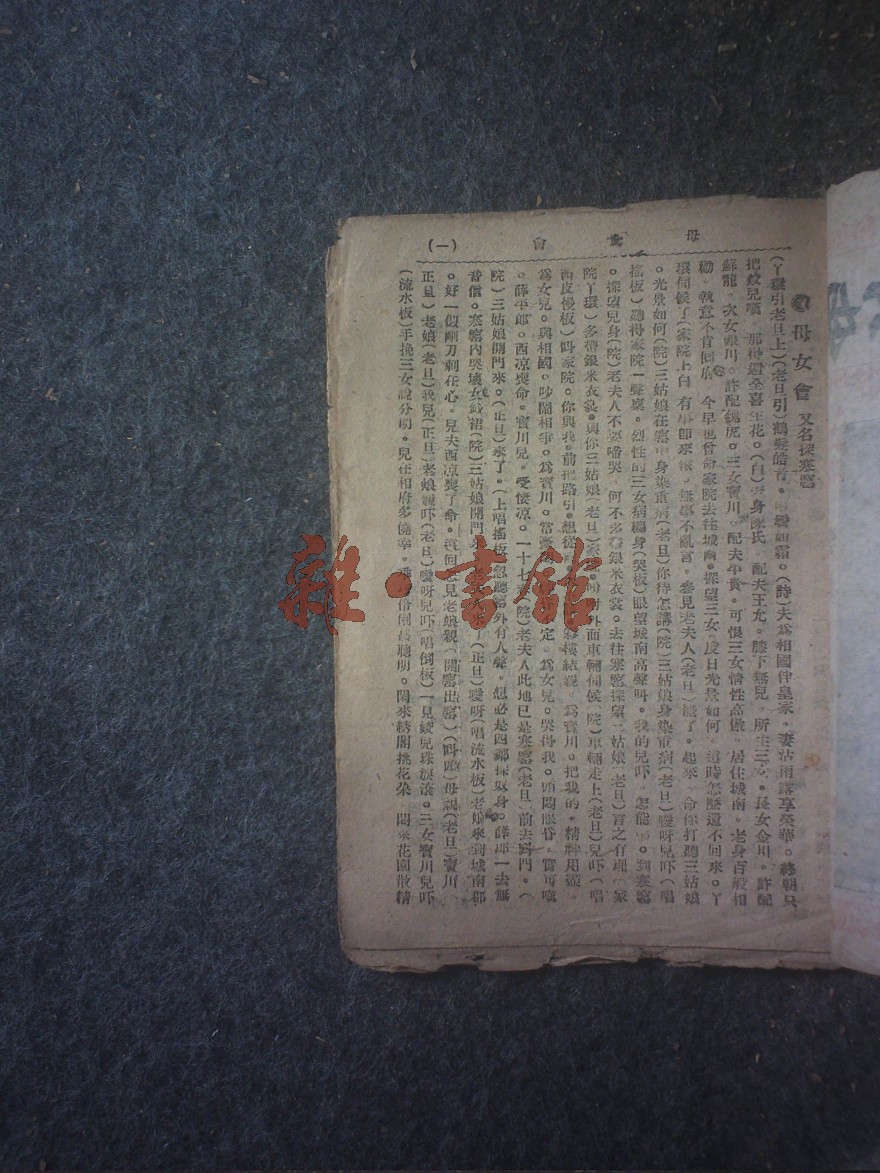 母女會
(一)
母女會 又名探寒窰
(丫環引老旦上)(老旦引)鶴髮皓首。兩鬢如霜。(詩)夫爲相國伴皇家。妻沾雨露享榮華。終朝只
把蛟兒嘆。那得鐵全喜生花。(白)老身陳氏。配夫王允。膝下無兒。所生三女。長女金川。許配
蘇龍。次女銀川。許配魏虎。三女寶川。配夫平貴。可恨三女情性高傲。居住城南。老身百般相
勸。執意不肯回府。今早也曾命家院去往城南。探望三女。度日光景如何。這時怎麼還不回來。丫
環伺候了(家院上白)有事卽來報。無事不亂言。參見老夫人(老旦)罷了。起來。命你打聽三姑娘
。光景如何(院)三姑娘在窰中身染重病(老旦)你待怎講(院)三姑娘身染重病(老旦)噯呀兒吓(唱
搖板)聽得家院一聲稟。烈性的三女病纏身(哭板)眼望城南高聲叫。我的兒吓。怎能 到寒窰
。探望兒身(院)老夫人不要啼哭。何不多帶銀米衣裳。去往寒窰探望三姑娘(老旦)言之有理。家
院丫環)多帶銀米衣裳。與你三姑娘(老旦)家院。吩咐外面車輛伺候(院)車輛走上(老旦)兒吓(唱
西皮慢板)叫家院。你與我。前把路引。想從 彩樓結親。爲寶川。把我的。精神用盡。
爲女兒。與相國。吵鬧相爭。爲寶川。常 定。爲女兒。哭得我。頭悶眼昏。實可嘆
。薛平郎。西凉喪命。寶川兒。受悽凉。一十七 院)老夫人此地已是寒窰(老旦)前去叫門。(
院)三姑娘開門來。(正旦)來了。(上唱搖板)忽聽窰外有人聲。想必是四鄰探奴身。薛郎一去無
音信。寒窰內哭壞女釵裙(院)三姑娘開門來 (正旦)噯呀(唱流水板)老娘來到城南郡
。好一似鋼刀刺在心。兒夫西凉喪了命。 回怎見老娘親(開窰出窰)(叫頭)母親(老旦)寶川
正旦)老娘(老旦)我兒(正旦)老娘親吓(老旦)噯呀兒吓(唱倒板)一見嬌兒珠淚滾。三女寶川兒吓
(流水板)手挽三女說分明。兒在相府多僥幸。 伶俐甚聰明。悶來綉閣挑花朵。悶來花園散精
雜·書館